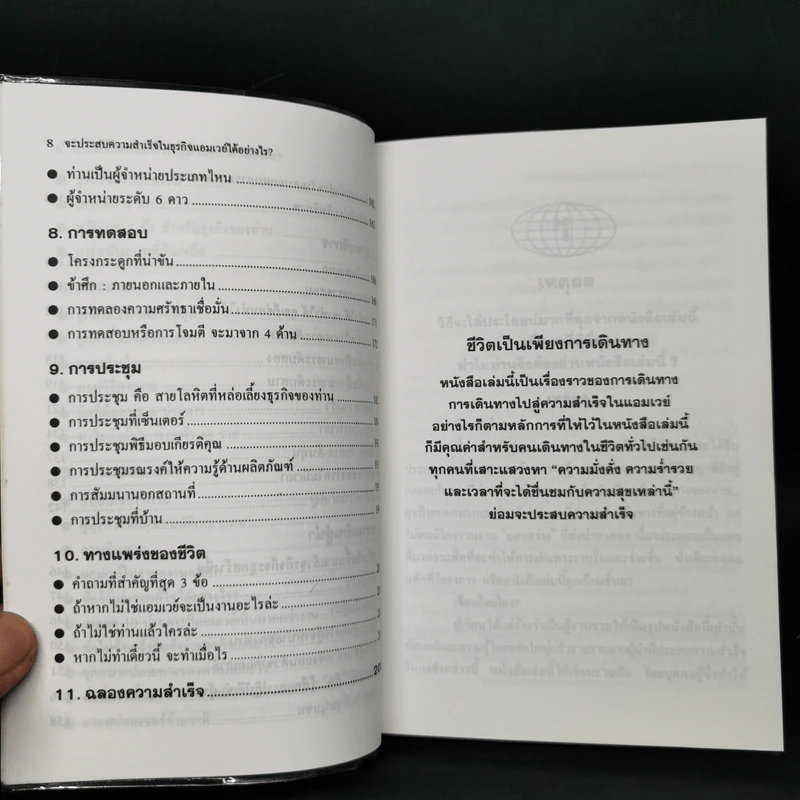 8 จะประสบความสำเร็จในธุรกิจแอมเวย์ได้อย่างไร?
● ท่านเป็นผู้จำหน่ายประเภทไหน
● ผู้จำหน่ายระดับ 6 ดาว
8. การทดสอบ
● โครงกระดูกที่น่าขัน
● ข้าศึก : ภายนอกและภายใน
● การทดลองความศรัทธาเชื่อมั่น
● การทดสอบหรือการโจมตี จะมาจาก 4 ด้าน
9. การประชุม
● การประชุม คือ สายโลหิตที่หล่อเลี้ยงธุรกิจของท่าน
● การประชุมที่เซ็นเตอร์
● การประชุมพิธีมอบเกียรติคุณ
● การประชุมรณรงค์ให้ความรู้ด้านผลิตภัณฑ์
● การสัมมนานอกสถานที่
● การประชุมที่บ้าน
10. ทางแพร่งของชีวิต
● คำถามที่สำคัญที่สุด 3 ข้อ
● ถ้าหากไม่ใช่แอมเวย์จะเป็นงานอะไรล่ะ
● ถ้าไม่ใช่ท่านแล้วใครล่ะ
● หากไม่ทำเดี๋ยวนี้ จะทำเมื่อไร
11. ฉลองความสำเร็จ
ชีวิตเป็นเพียงการเดินทาง
หนังสือเล่มนี้เป็นเรื่องราวของการเดินทาง
การเดินทางไปสู่ความสำเร็จในแอมเวย์
อย่างไรก็ตามหลักการที่ให้ไว้ในหนังสือเล่มนี้
ก็มีคุณค่าสำหรับคนเดินทางในชีวิตทั่วไปเช่นกัน
ทุกคนที่เสาะแสวงหา “ความมั่งคั่ง ความร่ำรวย
และเวลาที่จะได้ชื่นชมกับความสุขเหล่านี้”
ย่อมจะประสบความสำเร็จ